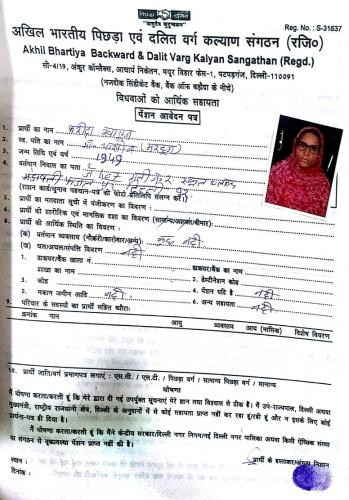 पिछड़ा दलित
"वसुधैव कुटुम्बकम्"
Reg. No. : S-31637
अखिल भारतीय पिछड़ा एवं दलित वर्ग कल्याण संगठन (रजि०)
Akhil Bhartiya Backward & Dalit Varg Kalyan Sangathan (Regd.)
सी-4/19, अंकुर कॉम्प्लैक्स, आचार्य निकेतन, मयूर विहार फेस-1, पटपड़गंज, दिल्ली-110091
(नजदीक सिंडीकेट बैंक, बैंक ऑफ बड़ौदा के नीचे)
विधवाओं को आर्थिक सहायता
पेंशन आवेदन पत्र
1. प्रार्थी का नाम
2. स्व. पति का नाम
3. जन्म तिथि एवं वर्ष 1949
4. वर्तमान निवास का पता
(राशन कार्ड/चुनाव पहचान-पत्र की फोटो प्रतिलिपि संलग्न करें।)
5. प्रार्थी का मतदाता सूची में पंजीकरण का विवरण :
6. प्रार्थी की शारीरिक एवं मानसिक दशा का विवरण (सामान्य/अशक्त/बीमार):
7. प्रार्थी की आर्थिक स्थिति का विवरण :
(क) वर्तमान व्यवसाय (नौकरी/कारोबार/अन्य): कुछ नहीं
(ख) चल/अचल/संपत्ति विवरण नहीं
1. डाकघर/बैंक खाता नं डाकघर/बैंक का नाम
शाखा का नाम 2. डेस्टीनेशन कोड
3. कोड 4. पेंशन यदि है नहीं
5. मकान जमीन आदि नहीं 6. अन्य सहायता नहीं
9. परिवार के सदस्यों का प्रार्थी सहित ब्यौरा:
क्रमांक नाम आयु व्यवसाय आय (मासिक) विशेष विवरण
10. प्रार्थी जाति/वर्ग प्रमाणपत्र लगाएं : एस.सी. / एस.टी. / पिछड़ा वर्ग / सामान्य पिछड़ा वर्ग / सामान्य
घोषणा
मैं घोषणा करता/करती हूं कि मेरे द्वारा दी गई उपर्युक्त सूचनाएं मेरे ज्ञान तथा विश्वास से ठीक हैं। मैं उप-राज्यपाल, दिल्ली अथवा
मुख्यमंत्री, राष्ट्रीय राजधानी क्षेत्र, दिल्ली के अनुदानों में से कोई सहायता प्राप्त नहीं कर रहा हूं/रही हूं और न इसके लिए कोई
प्रार्थना-पत्र ही दिया है।
मैं घोषणा करता/करती हूं कि मैंने केन्द्रीय सरकार/दिल्ली नगर निगम/नई दिल्ली नगर पालिका अथवा किसी ऐच्छिक संस्था
या संगठन से वृद्धावस्था पेंशन प्राप्त नहीं की है।
स्थान : प्रार्थी के हस्ताक्षर/अंगूठा निशान
दिनांक :